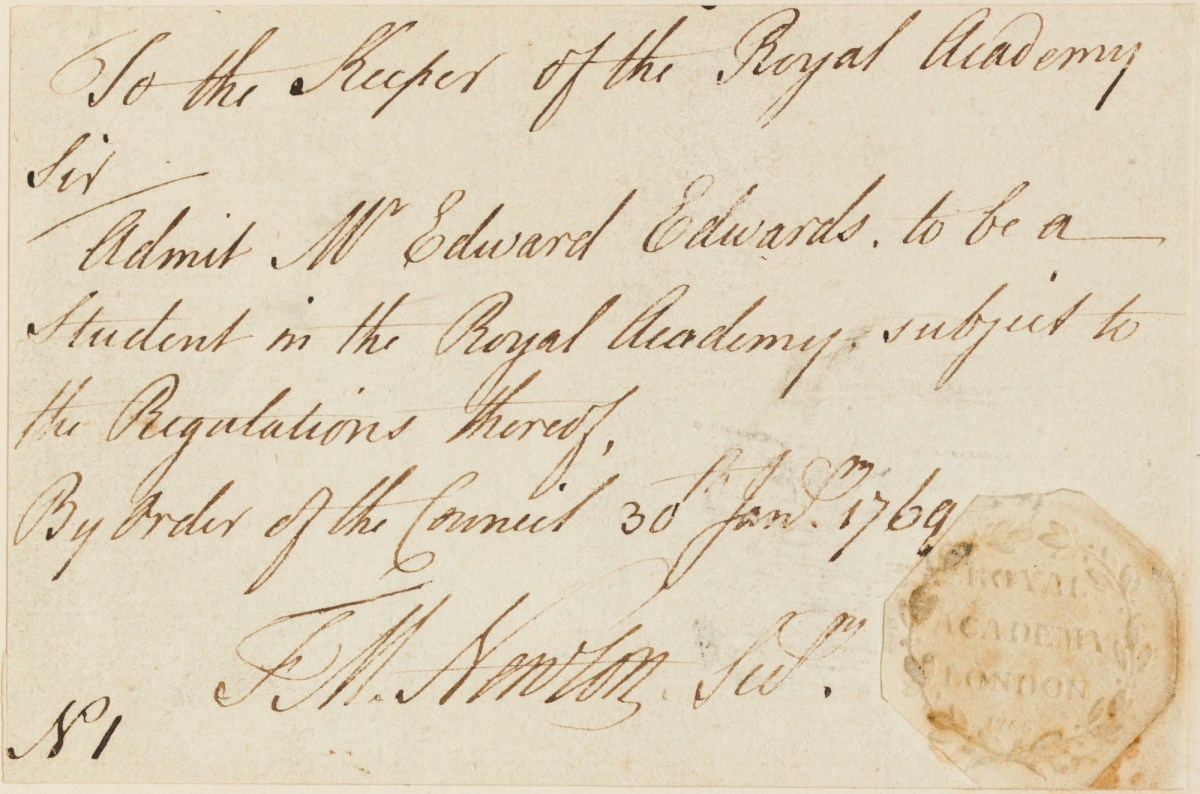 To the Keeper of the Royal Academy
Sir
Admit Mr Edward Edwards. to be a
Student in the Royal Academy. subject to
the Regulations thereof,
By Order of the Council 30th Jany. 1769
F M. Newton. Secry.
No 1
ROYAL
ACADEMY
LONDON